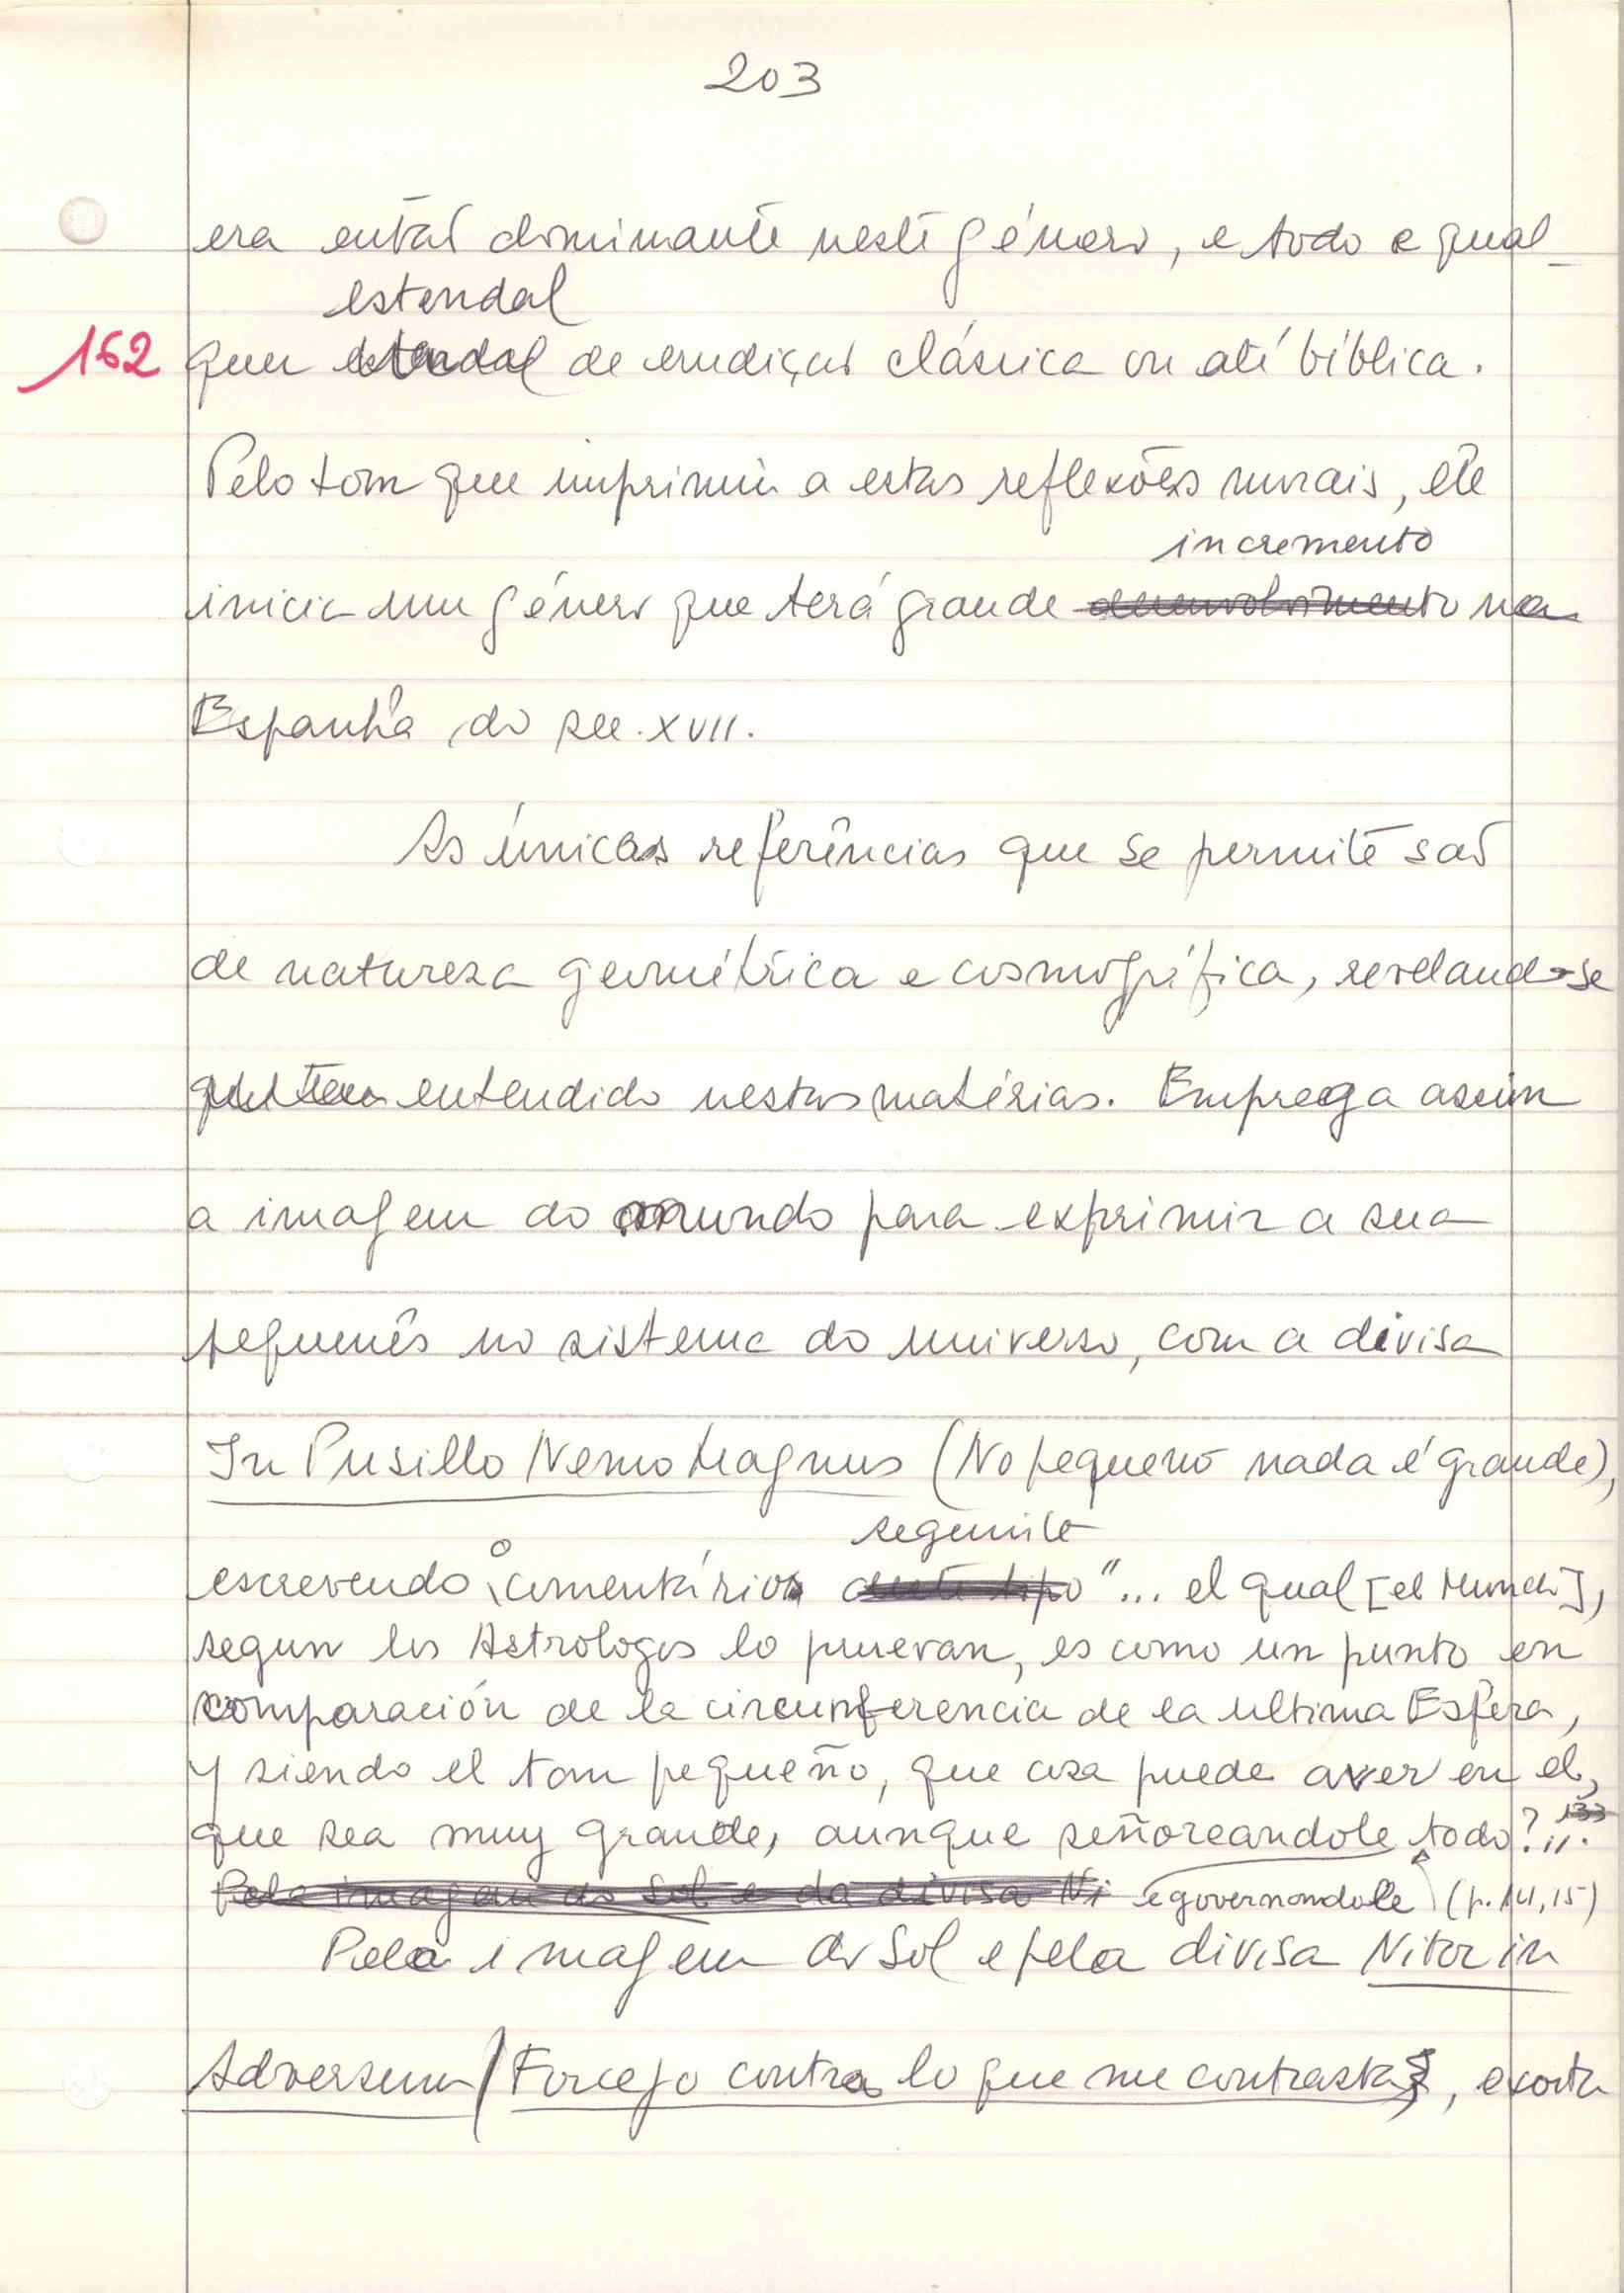 203
era então dominante neste género, e todo e qual-
estendal
162 quer estendal de erudição clássica ou até bíblica.
Pelo tom que imprimiu a estas reflexões morais, ele
incremento
inicia um género que terá grande desenvolvimento na
Espanha do séc. XVII.
As únicas referências que se permite são
de natureza geométrica e cosmográfica, revelando-se
entendido nestas matérias. Emprega assim
a imagem do mundo para exprimir a sua
pequenês no sistema do universo, com a divisa
In Pusillo Nemo Magnus (No pequeno nada é grande),
seguinte
escrevendo o comentário deste tipo "... el qual [el Mundo],
segun los Astrologos lo pruevan, es como un punto en
comparación de la circunferencia de la ultima Esfera,
y siendo el tam pequeño, que cosa puede aver en el,
que sea muy grande, aunque señoreandole todo?". 133
Pela imagem do Sol e da divisa Ni e governondole (p. 14, 15)
Pela imagem do Sol e pela divisa Nitor in
Adversum (Forcejo contra lo que me contrasta), exorta